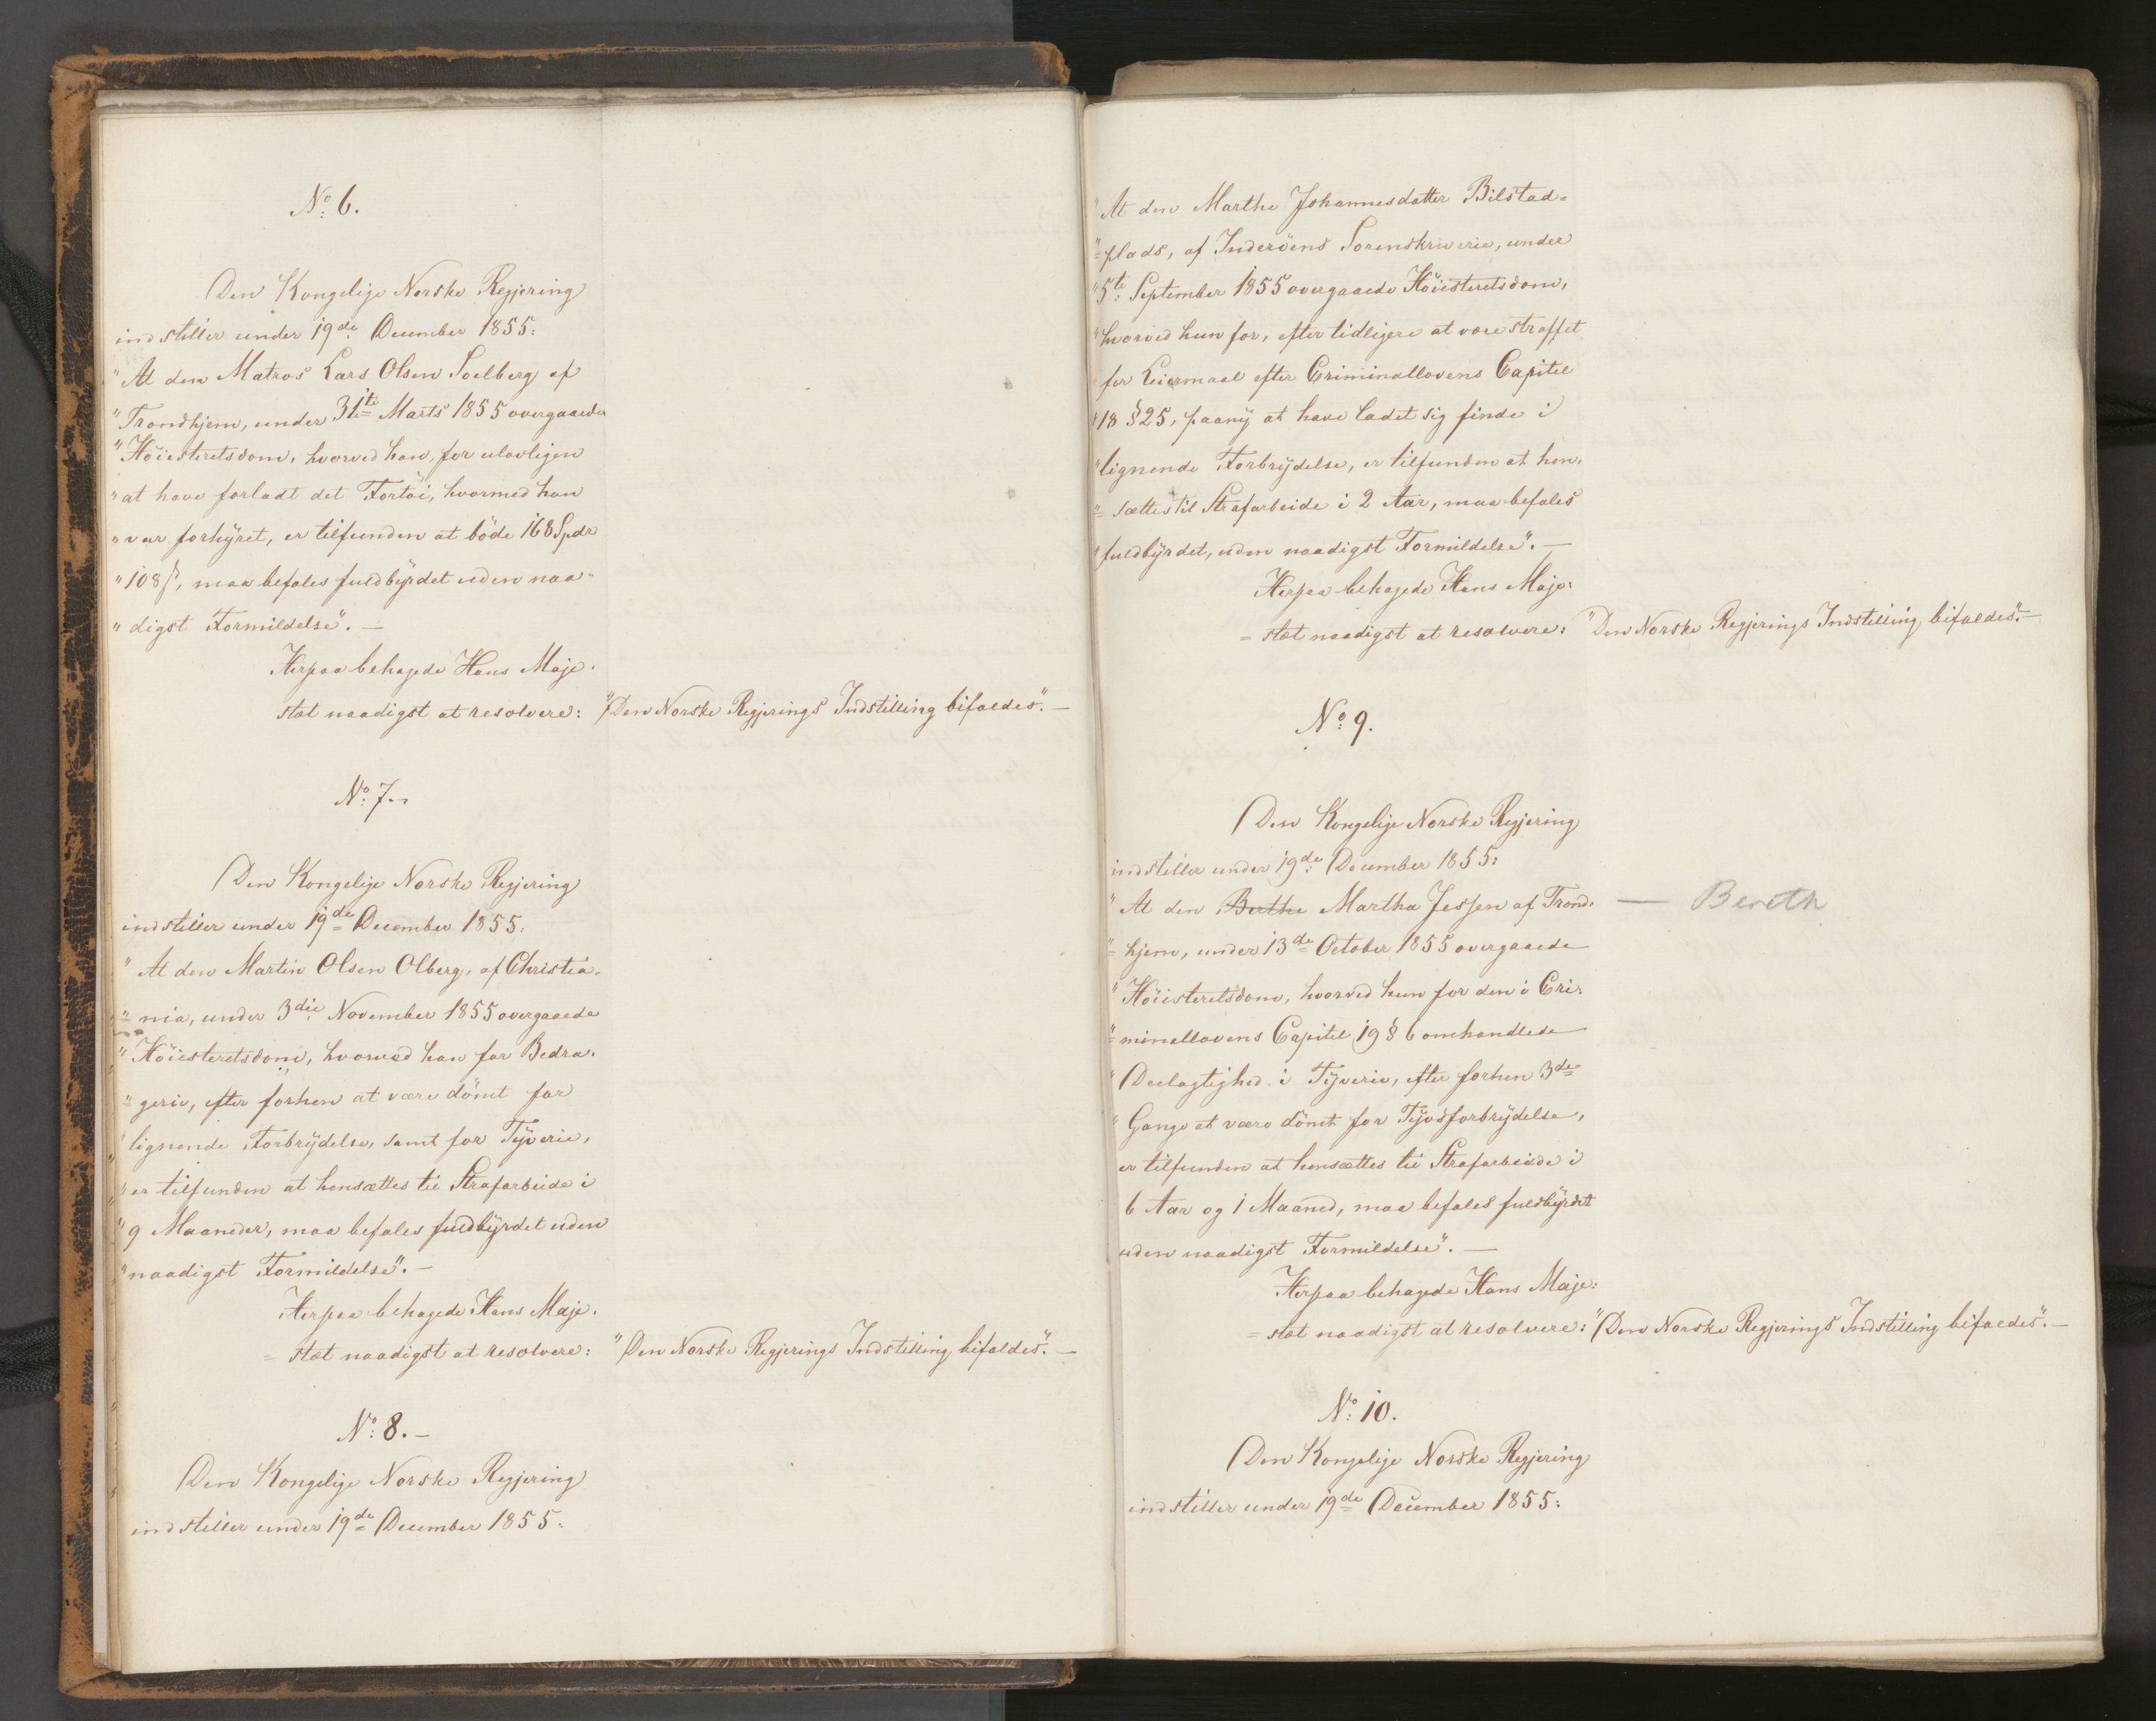 No: 6.
Den Kongelige Norske Regjering
indstiller under 19de December 1855:
"At den Matros Lars Olsen Soelberg af
"Trondhjem, under 31te Marts 1855 overgaaede
"Höiesteretsdom, hvorved han, for ulovligen
"at have forladt det Fartöi, hvormed han
"var forhyret, er tilfunden at böde 168 Spdr
"108 ß, maa befales fuldbyrdet uden naa-
"digst Formildelse". —
Herpaa behagede Hans Maje-
stæt naadigst at resolvere: "Den Norske Regjerings Indstilling bifaldes". —
No: 7. -
Den Kongelige Norske Regjering
indstiller under 19de December 1855:
"At den Martin Olsen Olberg, af Christia-
"=nia, under 3die November 1855 overgaaede
"Höiesteretsdom, hvorved han for Bedra-
"=gerie, efter forhen at være dömt for
"lignende Forbrydelse, samt for Tyverie,
"er tilfunden at hensættes til Strafarbeide i
"9 Maaneder, maa befales fuldbyrdet uden
"naadigst Formildelse". —
Herpaa behagede Hans Maje-
=stæt naadigst at resolvere: "Den Norske Regjerings Indstilling bifaldes". —
No: 8. —
Den Kongelige Norske Regjering
indstiller under 19de December 1855:
"At den Marthe Johannesdatter Bilstad-
"=plads, af Inderöens Sorenskriverie, under
"5te September 1855 overgaaede Höiesteretsdom,
"hvorved hun for, efter tidligere at være straffet
"for Leiermaal efter Criminallovens Capitel
"18 §25, paany at have ladet sig finde i
"lignende Forbrydelse, er tilfunden at hen-
"=sættes til Strafarbeide i 2 Aar, maa befales
"fuldbyrdet, uden naadigst Formildelse". —
Herpaa behagede Hans Maje-
=stæt naadigst at resolvere: "Den Norske Regjerings Indstilling bifaldes". —
No: 9.
Den Kongelige Norske Regjering
indstiller under 19de December 1855:
"At den Berthe Martha Jessen af Trond- — Bereth
"=hjem, under 13de October 1855 overgaaede
"Höiesteretsdom, hvorved hun for den i Cri-
"=minallovens Capitel 19 § 6 omhandlede
"Deelagtighed i Tyverie, efter forhen 3de
"Gange at være dömt for Tyvsforbrydelse,
er tilfunden at hensættes til Strafarbeide i
6 Aar og 1 Maaned, maa befales fuldbyrdet
uden naadigst Formildelse". —
Herpaa behagede Hans Maje-
=stæt naadigst at resolvere: "Den Norske Regjerings Indstilling bifaldes". —
No: 10.
Den Kongelige Norske Regjering
indstiller under 19de December 1855: